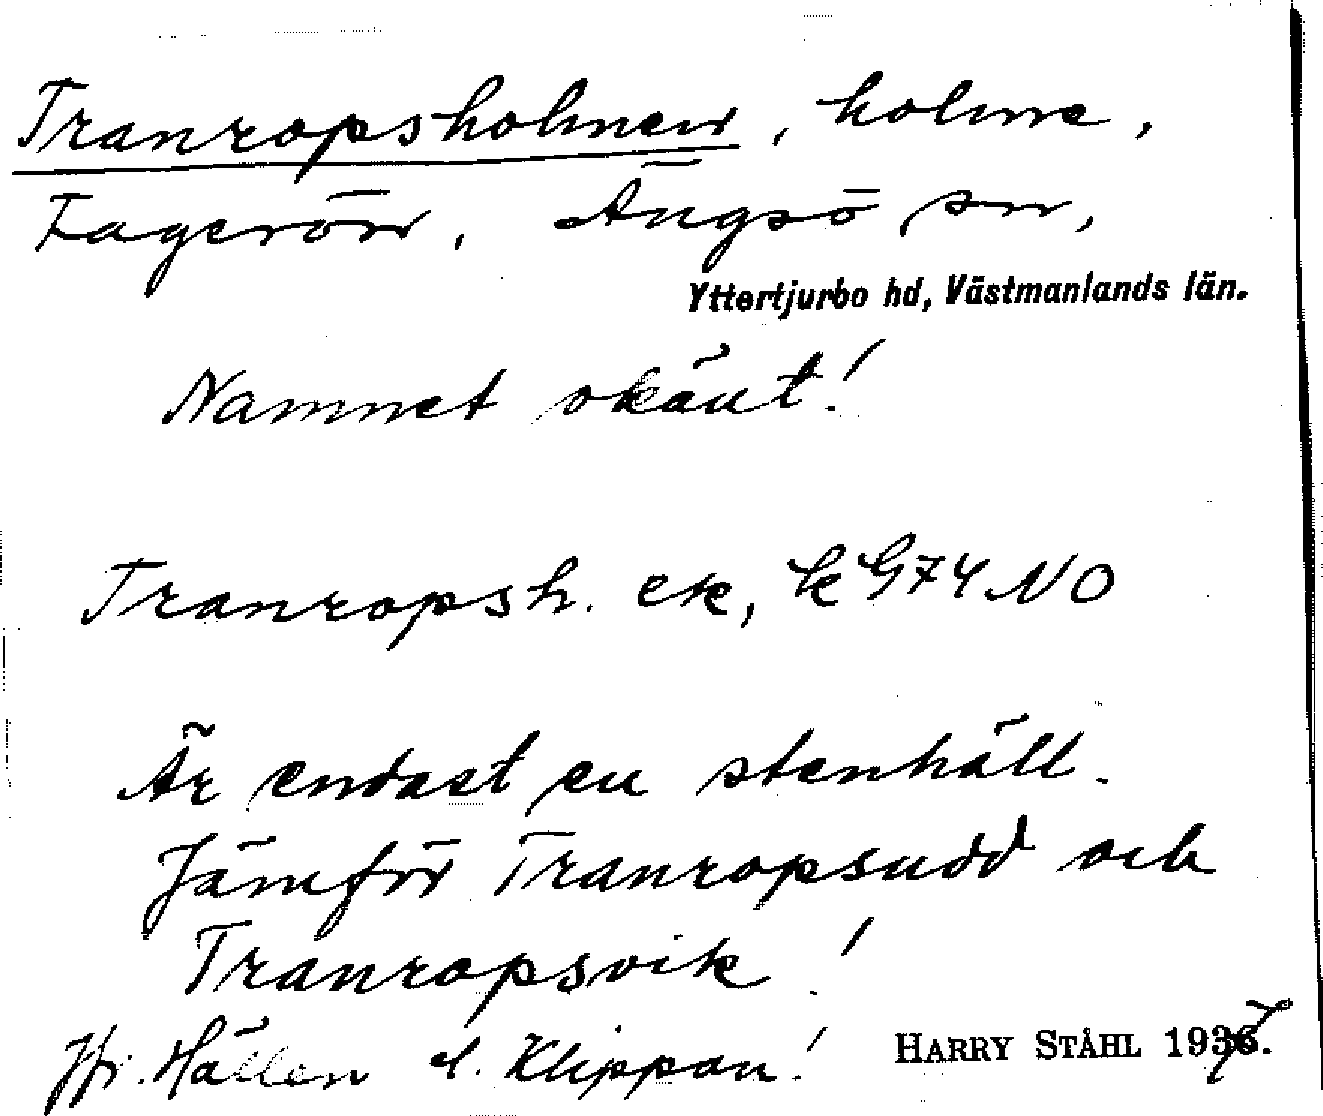 Tranropsholmen, holme,
Fagerön, Ängsö sn,
Yttertjurbo hd, Västmanlands län.
Namnet okänt!
Tranropsh. ek, k G74 NO
Är endast en stenhäll.
Jämför Tranropsudd och
Tranropsvik!
Jfr. Hällen el. Klippan!
HARRY STÅHL 1937.